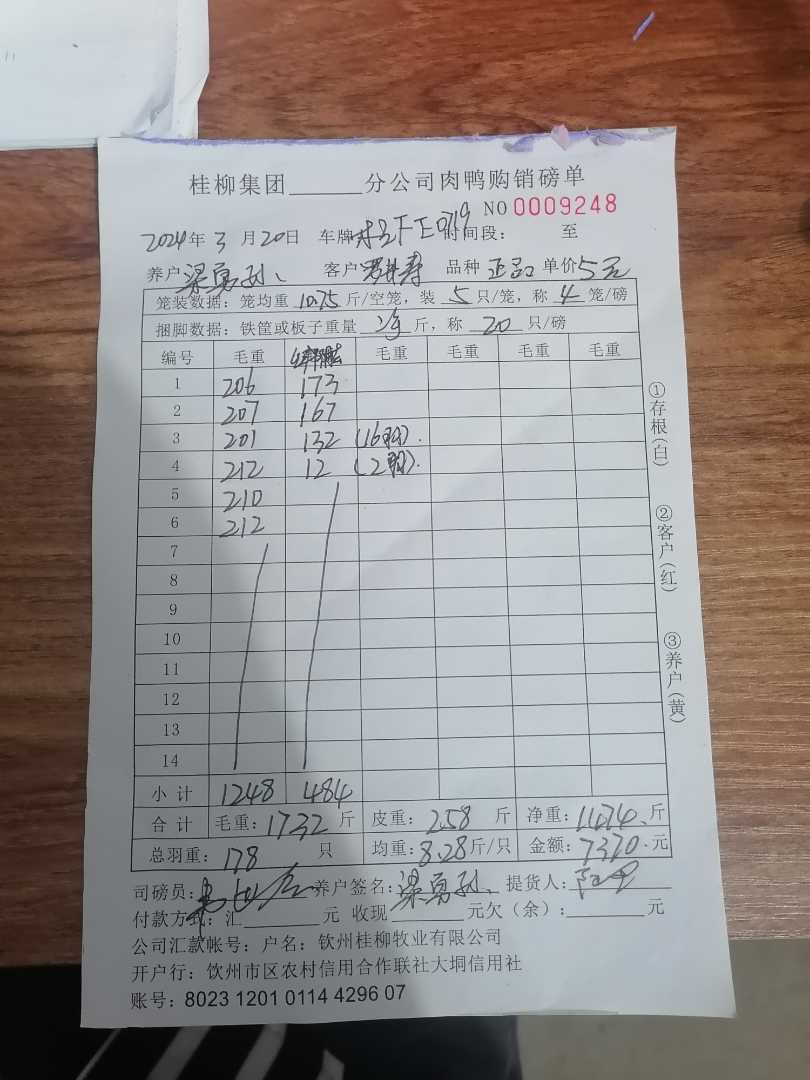 桂柳集团______分公司肉鸭购销磅单
NO 0009248
2024年 3 月 20日 车牌 F E0719 时间段: 至
养户 梁勇孙 客户 品种 正品 单价 5元
笼装数据: 笼均重 10.75 斤/空笼, 装 5 只/笼, 称 4 笼/磅
捆脚数据: 铁筐或板子重量 净 斤, 称 20 只/磅
编号 毛重 毛重 毛重 毛重 毛重
1 206 173
2 207 167
3 201 132 (16羽).
4 212 12 (2羽).
5 210
6 212
7
8
9
10
11
12
13
14
小计 1248 484
合计 毛重: 1732 斤 皮重: 258 斤 净重: 1474 斤
总羽重: 178 只 均重: 8.28 斤/只 金额: 7370.元
司磅员: 养户签名: 梁勇孙 提货人:
付款方式: 汇______元 收现______元欠(余):______元
公司汇款帐号: 户名: 钦州桂柳牧业有限公司
开户行: 饮州市区农村信用合作联社大垌信用社
账号: 8023 1201 0114 4296 07
①存根(白)
②客户(红)
③养户(黄)